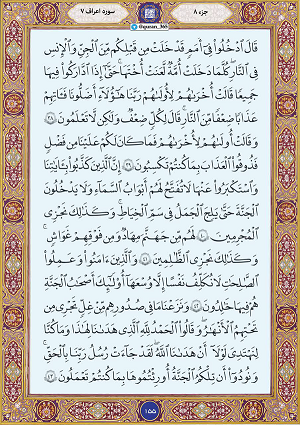 جزء ۸
@quran_365
سوره اعراف ۷
قَالَ ٱدْخُلُوا۟ فِىٓ أُمَمٍ قَدْ خَلَتْ مِن قَبْلِكُم مِّنَ ٱلْجِنِّ وَٱلْإِنسِ
فِى ٱلنَّارِ ۖ كُلَّمَا دَخَلَتْ أُمَّةٌ لَّعَنَتْ أُخْتَهَا ۖ حَتَّىٰٓ إِذَا ٱدَّارَكُوا۟ فِيهَا
جَمِيعًا قَالَتْ أُخْرَىٰهُمْ لِأُولَىٰهُمْ رَبَّنَا هَٰٓؤُلَآءِ أَضَلُّونَا فَـَٔاتِهِمْ
عَذَابًا ضِعْفًا مِّنَ ٱلنَّارِ ۖ قَالَ لِكُلٍّ ضِعْفٌ وَلَٰكِن لَّا تَعْلَمُونَ ۝٣٨
وَقَالَتْ أُولَىٰهُمْ لِأُخْرَىٰهُمْ فَمَا كَانَ لَكُمْ عَلَيْنَا مِن فَضْلٍ
فَذُوقُوا۟ ٱلْعَذَابَ بِمَا كُنتُمْ تَكْسِبُونَ ۝٣٩ إِنَّ ٱلَّذِينَ كَذَّبُوا۟ بِـَٔايَٰتِنَا
وَٱسْتَكْبَرُوا۟ عَنْهَا لَا تُفَتَّحُ لَهُمْ أَبْوَٰبُ ٱلسَّمَآءِ وَلَا يَدْخُلُونَ
ٱلْجَنَّةَ حَتَّىٰ يَلِجَ ٱلْجَمَلُ فِى سَمِّ ٱلْخِيَاطِ ۚ وَكَذَٰلِكَ نَجْزِى
ٱلْمُجْرِمِينَ ۝٤٠ لَهُم مِّن جَهَنَّمَ مِهَادٌ وَمِن فَوْقِهِمْ غَوَاشٍ ۚ
وَكَذَٰلِكَ نَجْزِى ٱلظَّٰلِمِينَ ۝٤١ وَٱلَّذِينَ ءَامَنُوا۟ وَعَمِلُوا۟
ٱلصَّٰلِحَٰتِ لَا نُكَلِّفُ نَفْسًا إِلَّا وُسْعَهَآ أُو۟لَٰٓئِكَ أَصْحَٰبُ ٱلْجَنَّةِ ۖ
هُمْ فِيهَا خَٰلِدُونَ ۝٤٢ وَنَزَعْنَا مَا فِى صُدُورِهِم مِّنْ غِلٍّ تَجْرِى مِن
تَحْتِهِمُ ٱلْأَنْهَٰرُ ۖ وَقَالُوا۟ ٱلْحَمْدُ لِلَّهِ ٱلَّذِى هَدَىٰنَا لِهَٰذَا وَمَا كُنَّا
لِنَهْتَدِىَ لَوْلَآ أَنْ هَدَىٰنَا ٱللَّهُ ۖ لَقَدْ جَآءَتْ رُسُلُ رَبِّنَا بِٱلْحَقِّ ۖ
وَنُودُوٓا۟ أَن تِلْكُمُ ٱلْجَنَّةُ أُورِثْتُمُوهَا بِمَا كُنتُمْ تَعْمَلُونَ ۝٤٣
۱۵۵